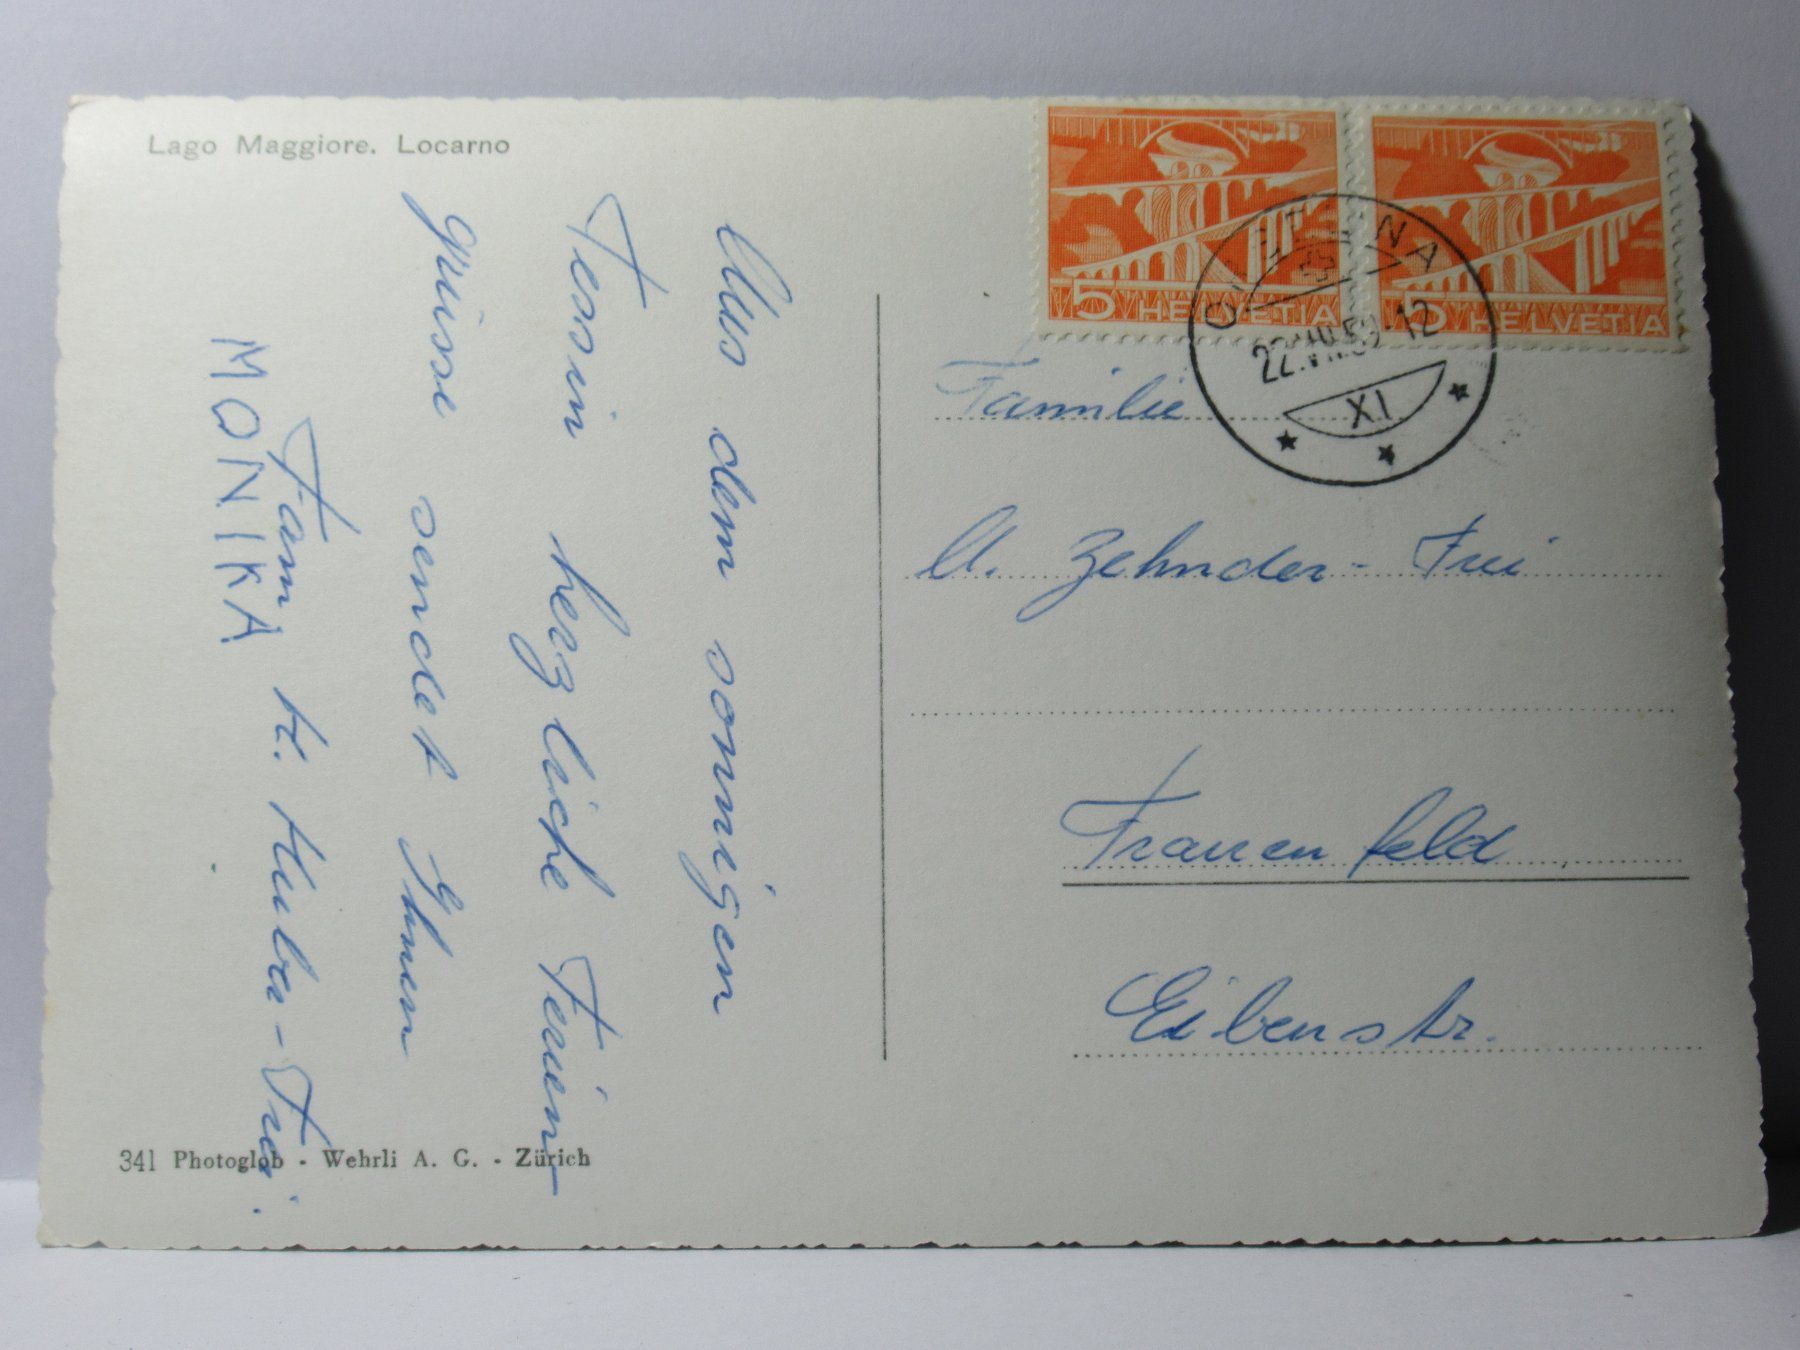 Lago Maggiore. Locarno
Aus dem sonnigen
Tessin herzliche Ferien-
grüsse sendet Ihnen
Fam. H. Huber-Frei.
MONIKA
341 Photoglob - Wehrli A. G. - Zürich
5 HELVETIA
5 HELVETIA
22. 59-12
XI
Familie
A. Zehnder-Frei
Frauenfeld
Eibenstr.